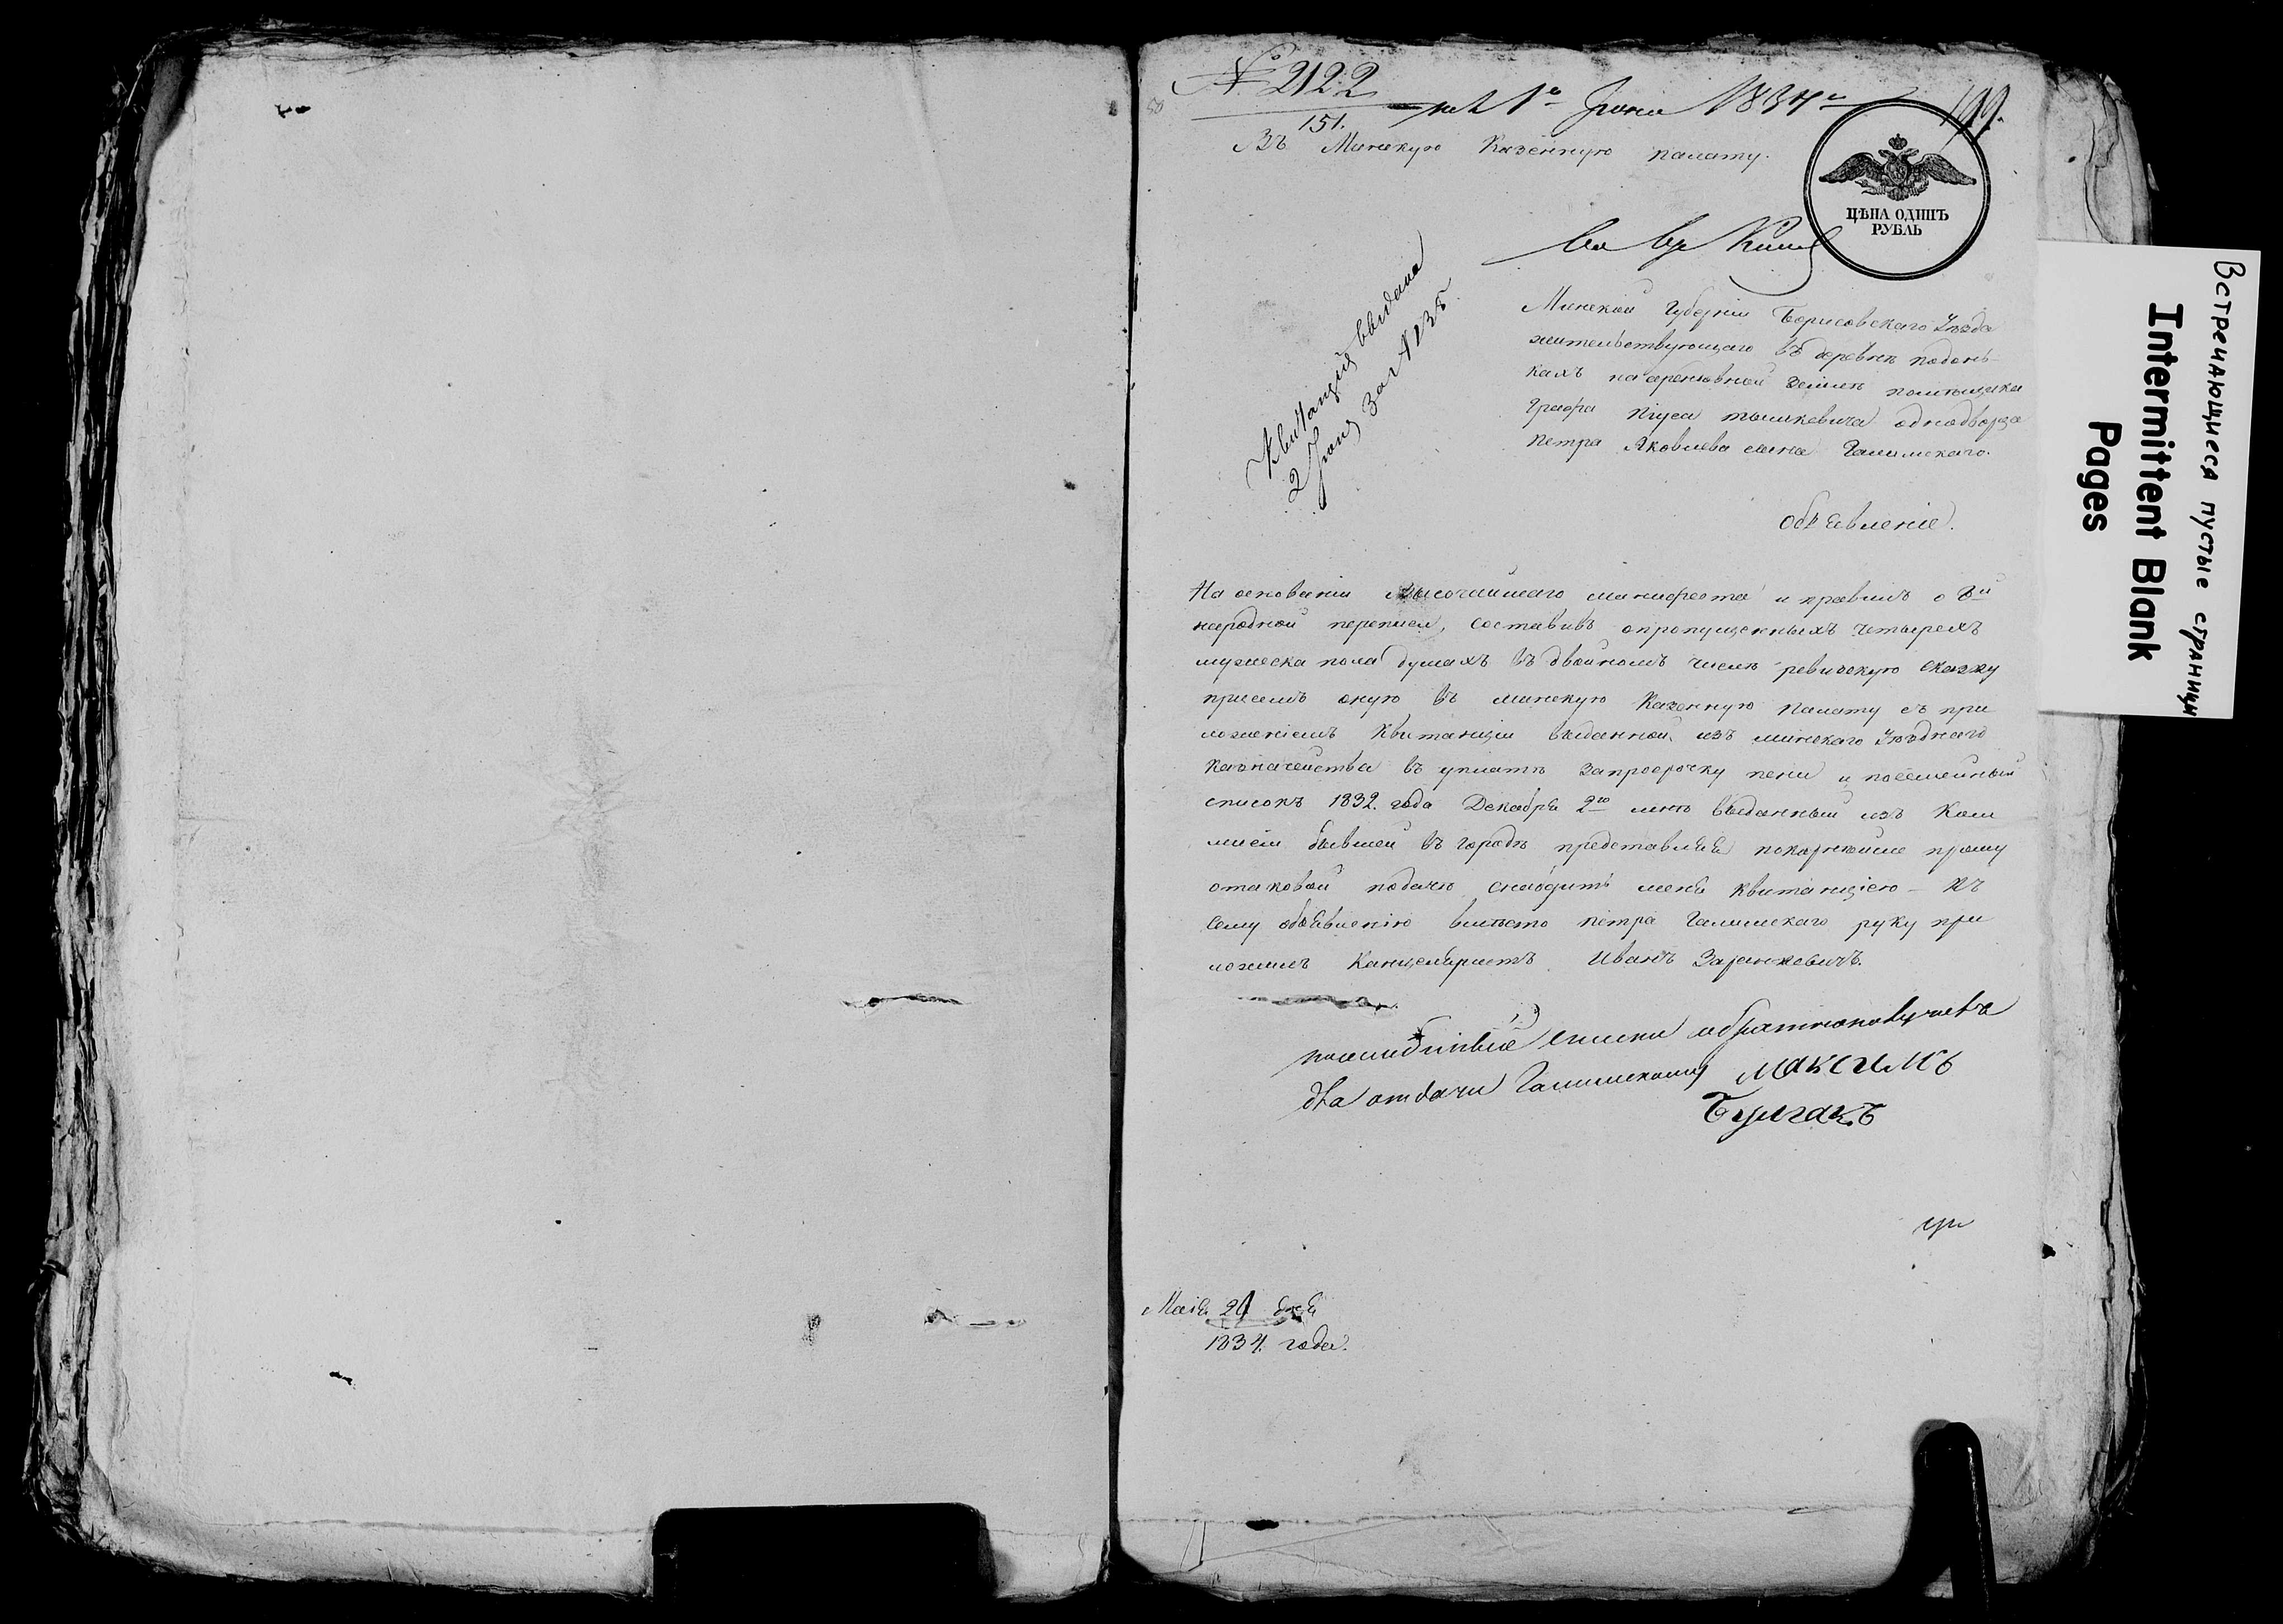 № 2122
151.
1го Іюня 1834го
199.
Въ Минскую Казенную палату.
ЦѢНА ОДИНЪ
РУБЛЬ
Квитанція выдана
2 Іюня за №
Минской Губерніи Борисовскаго Уѣзда
жительствующаго въ деревнѣ подонь-
кахъ на арендовной Землѣ помѣщика
Графа Піуса тышкевича однодворца
Петра Яковлева сына Галимскаго.
Объявленіе.
На основаніи высочайшаго манифеста и правилъ о 8й
народной переписи, составивъ опропущенныхъ четырехъ
мужеска пола душахъ въ двойномъ числѣ ревизскую сказку
при семъ оную въ минскую Казенную Палату съ при
ложеніемъ Квитанціи выданной изъ минскаго Уѣзднаго
Казначейства въ уплатѣ запросрочку пени и посемейный
списокъ 1832. года Декабря 9го мнѣ выданный изъ Ком
мисіи бывшей въ городѣ представляя покорнѣйше прошу
отаковой подачѣ снабдить меня Квитанціею – Къ
сему объявленію вмѣсто Петра Галимскаго руку при
ложилъ Канцеляристъ Иванъ Заранковичъ.
списки обратнополучивъ
для отдачи Галимскому Максимъ
Булгакъ
Маія 21 дня
1834. года.
Встречающиеся пустые страницы
Intermittent Blank
Pages